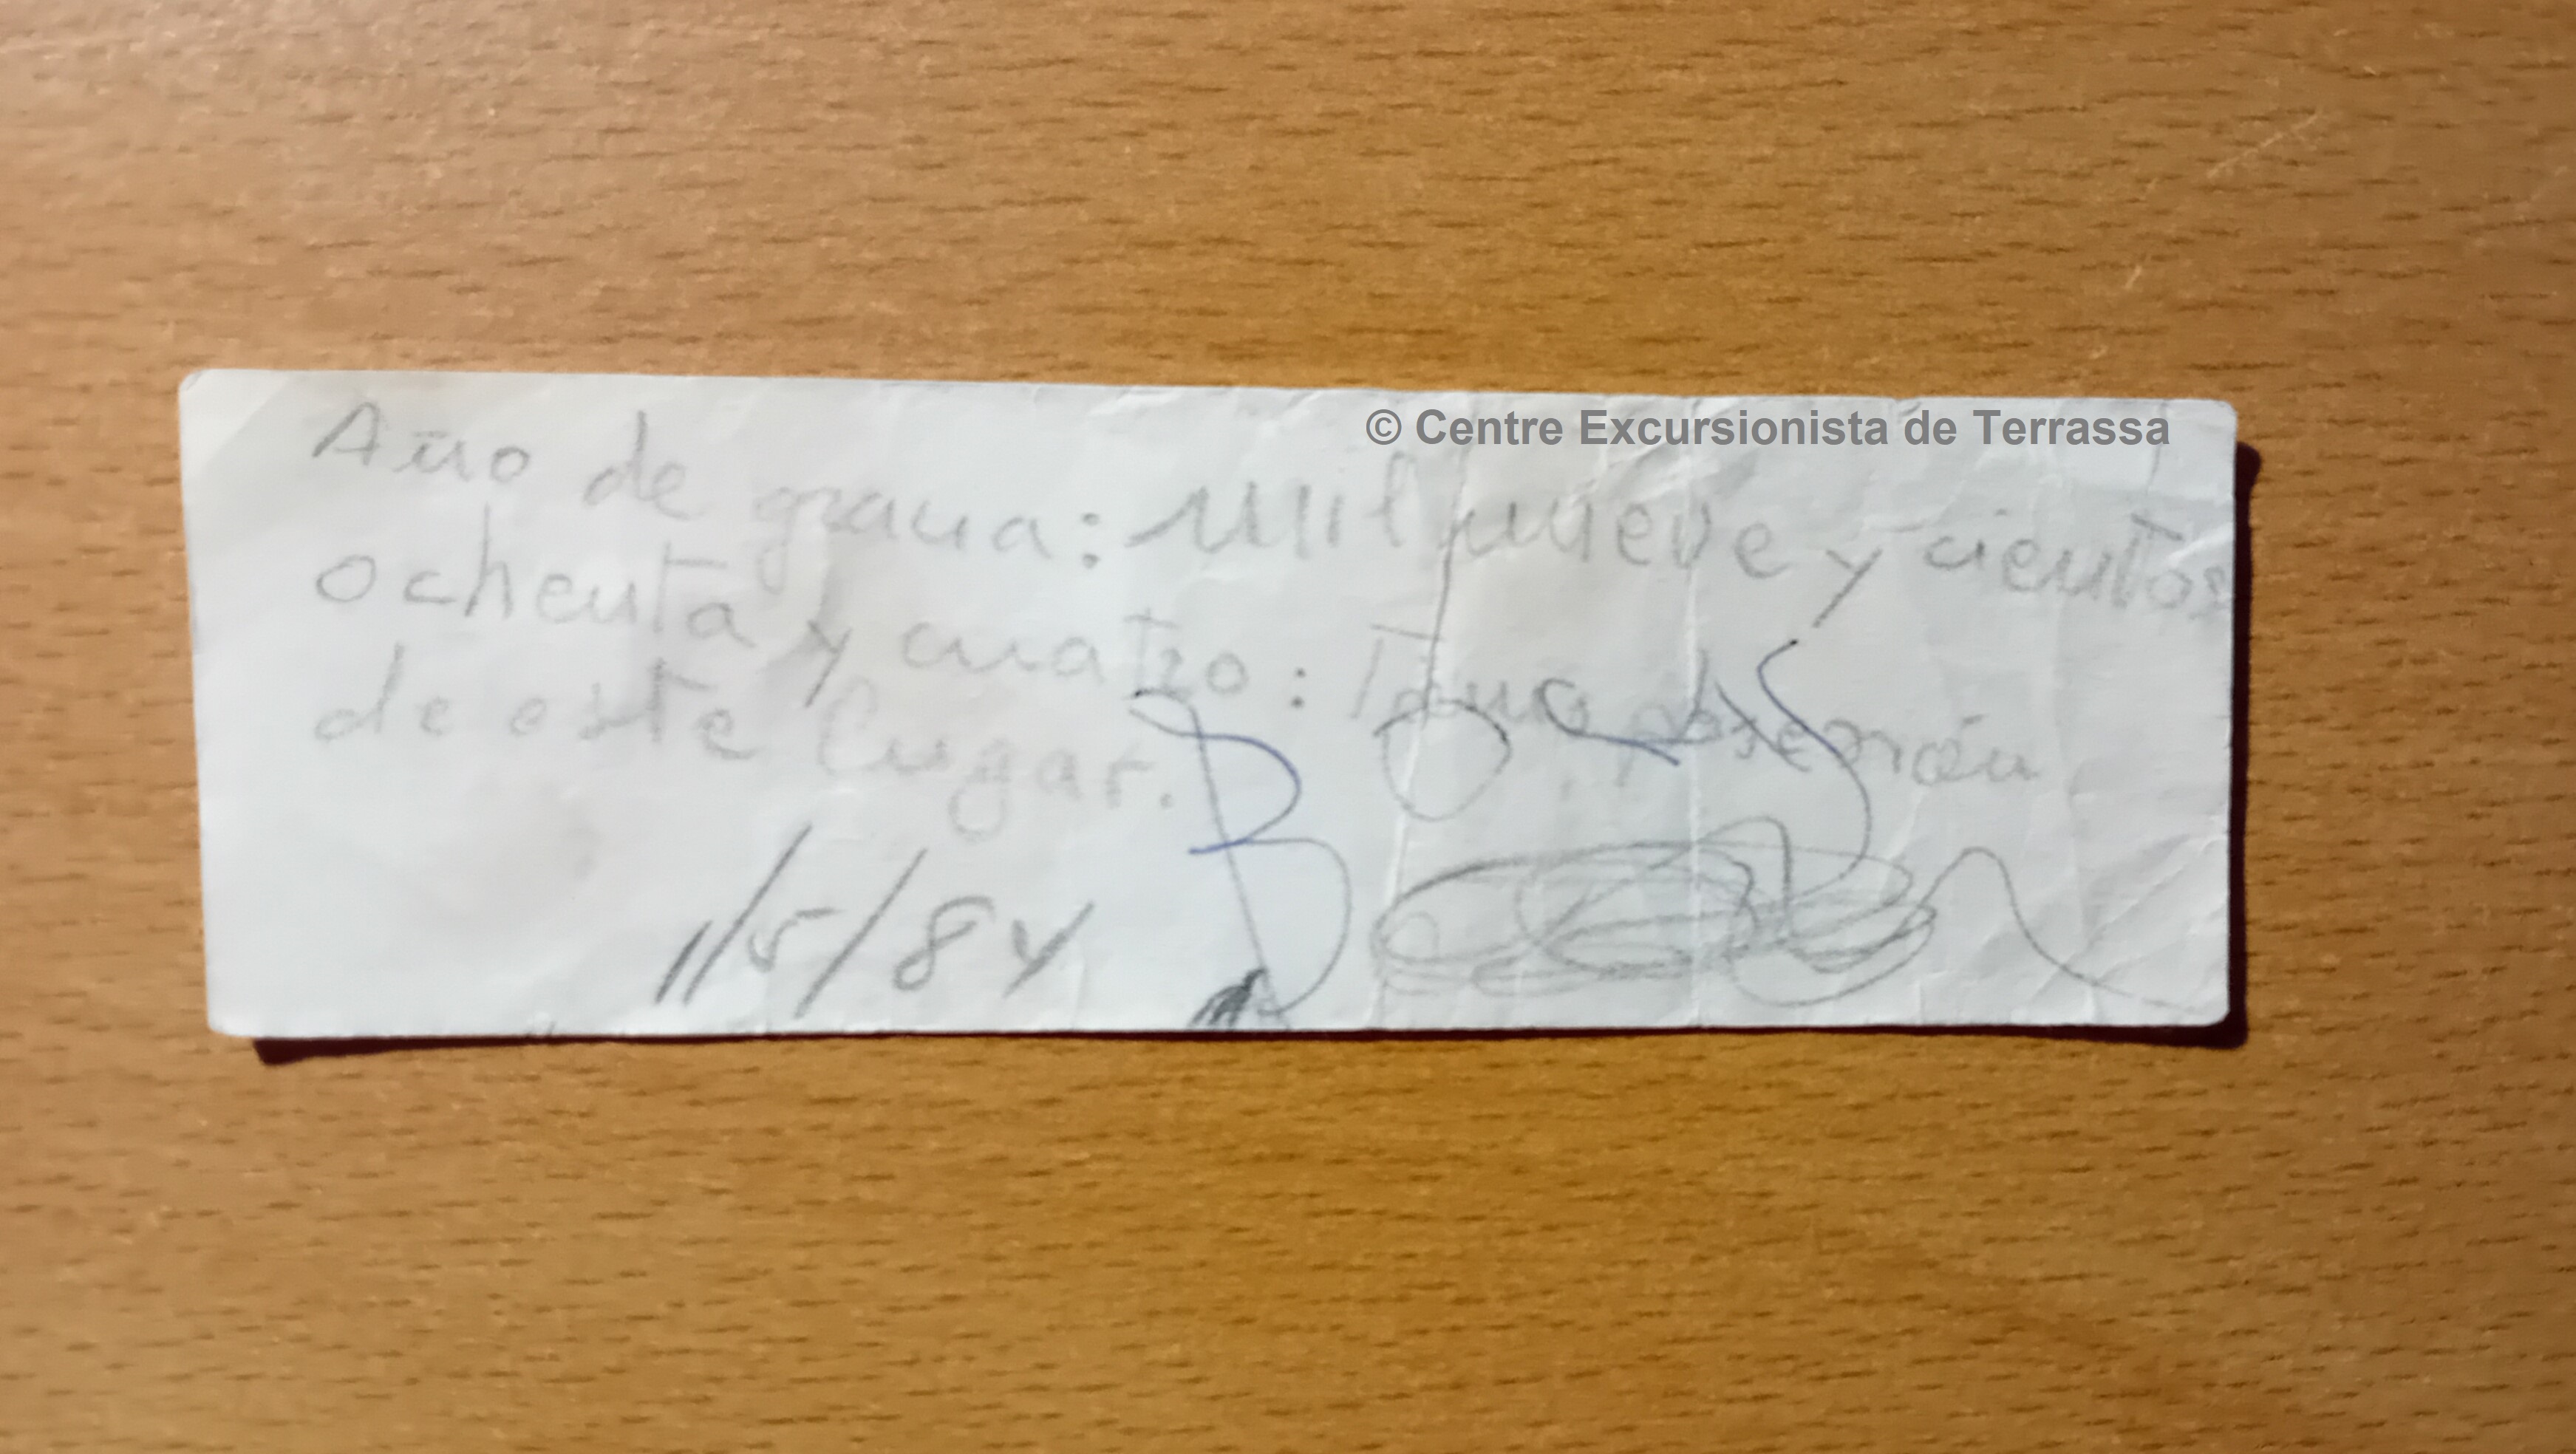 © Centre Excursionista de Terrassa
Año de gracia: Mil nueve y cientos
ochenta y cuatro: Tomo posesión
de este lugar.
11/5/84